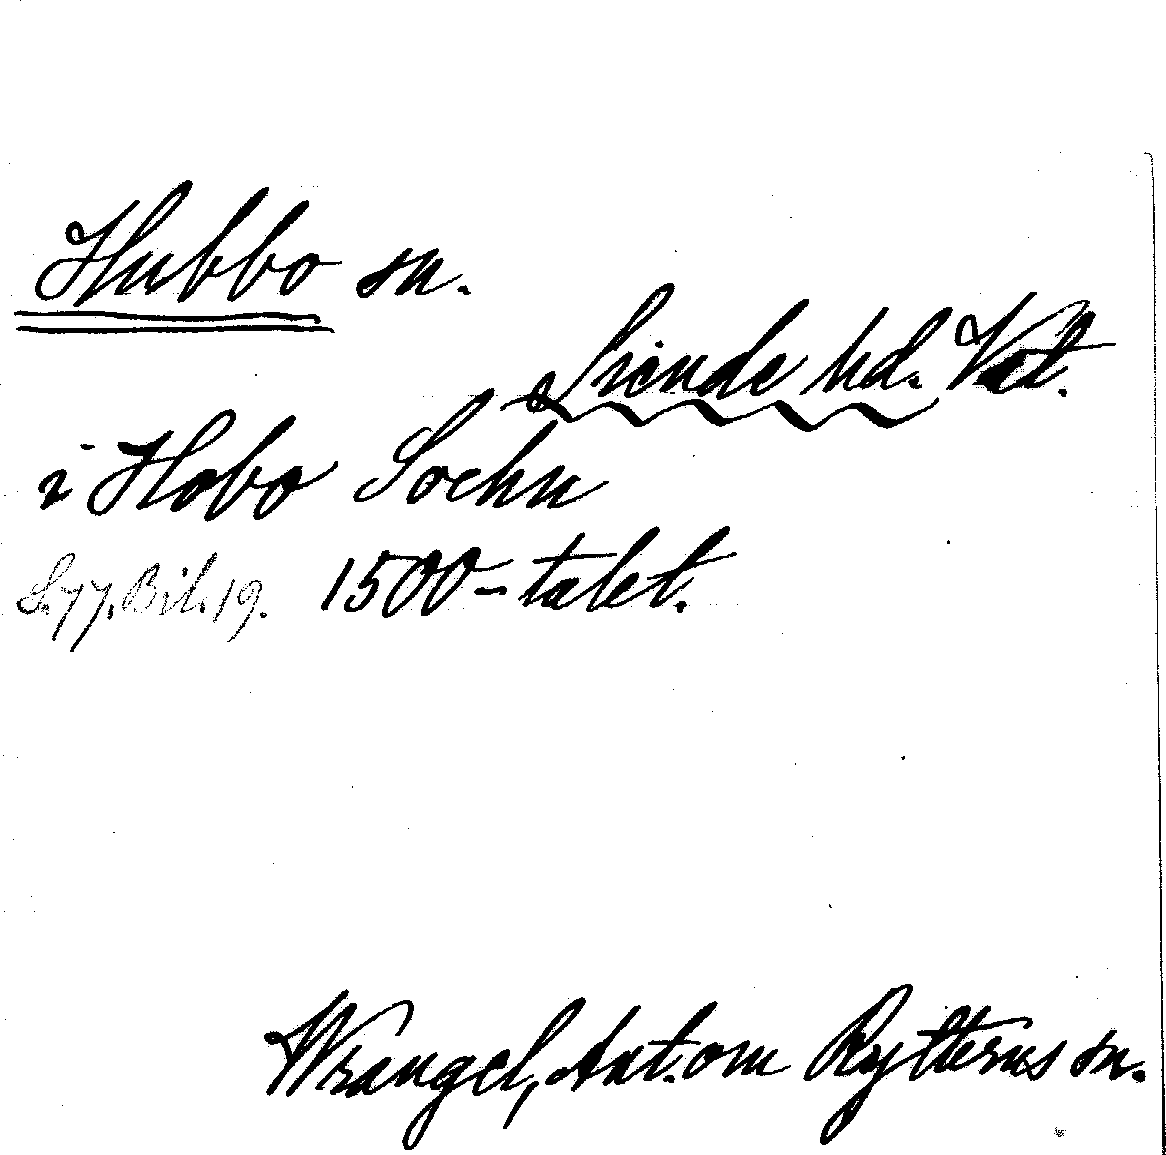 Hubbo sn.
Siende hd. Vstm.
i Hobo Sochn
S. 77, Bil. 19. 1500-talet.
Wrangel, Ant. om Rytterns sn.